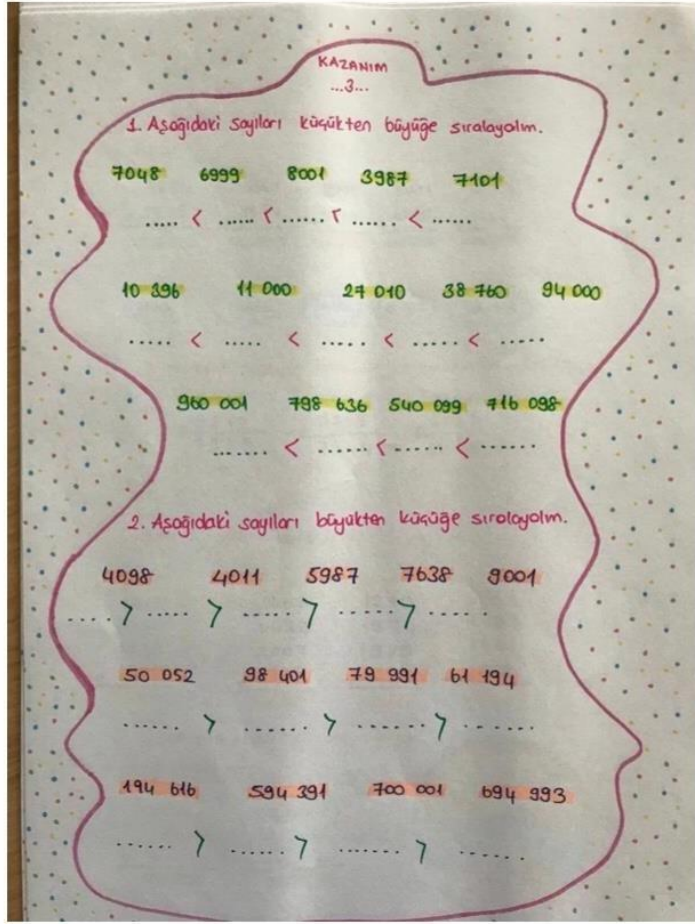 KAZANIM
...3...
1. Aşağıdaki sayıları küçükten büyüğe sıralayalım.
7048 6999 8001 3987 7101
..... < ...... < ...... < ...... < ......
10 396 11 000 27 010 38 760 94 000
..... < ..... < ..... < ..... < .....
960 001 798 636 540 099 716 098
....... < ...... < ...... < .......
2. Aşağıdaki sayıları büyükten küçüğe sıralayalım.
4098 4011 5987 7638 9001
..... > ...... > ...... > ...... > ......
50 052 98 401 79 991 61 194
....... > ........ > ........ > ........
194 616 594 391 700 001 694 993
...... > ....... > ....... > .......